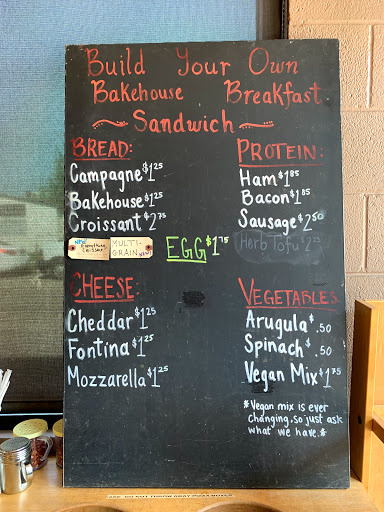 Build Your Own
Bakehouse Breakfast
~ Sandwich ~
BREAD:
Campagne $1.25
Bakehouse $1.25
Croissant $2.75
NEW
Everything
Croissant
MULTI-
GRAIN
EGG $1.75
PROTEIN:
Ham $1.85
Bacon $1.85
Sausage $2.50
Herb Tofu $2.25
CHEESE:
Cheddar $1.25
Fontina $1.25
Mozzarella $1.25
VEGETABLES
Arugula $.50
Spinach $.50
Vegan Mix $1.35
*Vegan mix is ever
changing, so just ask
what we have.*